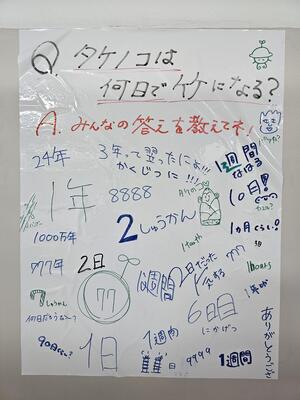 Q.タケノコは
何日でイケになる?
A.みんなの答えを教えてネ!
24年
3年って習ったにょ!!!
かくじつに!!!
1週間
10日!
1年
8888
2しゅうかん
1000万年
1ヵ月ぐらい!
777年
2日
77
1週間
777
1month
6日目
にかげつ
しゅうかん
何日だろうな〜?
90日ぐらい?
1日
1週間
9999
1週間
ありがとうござ